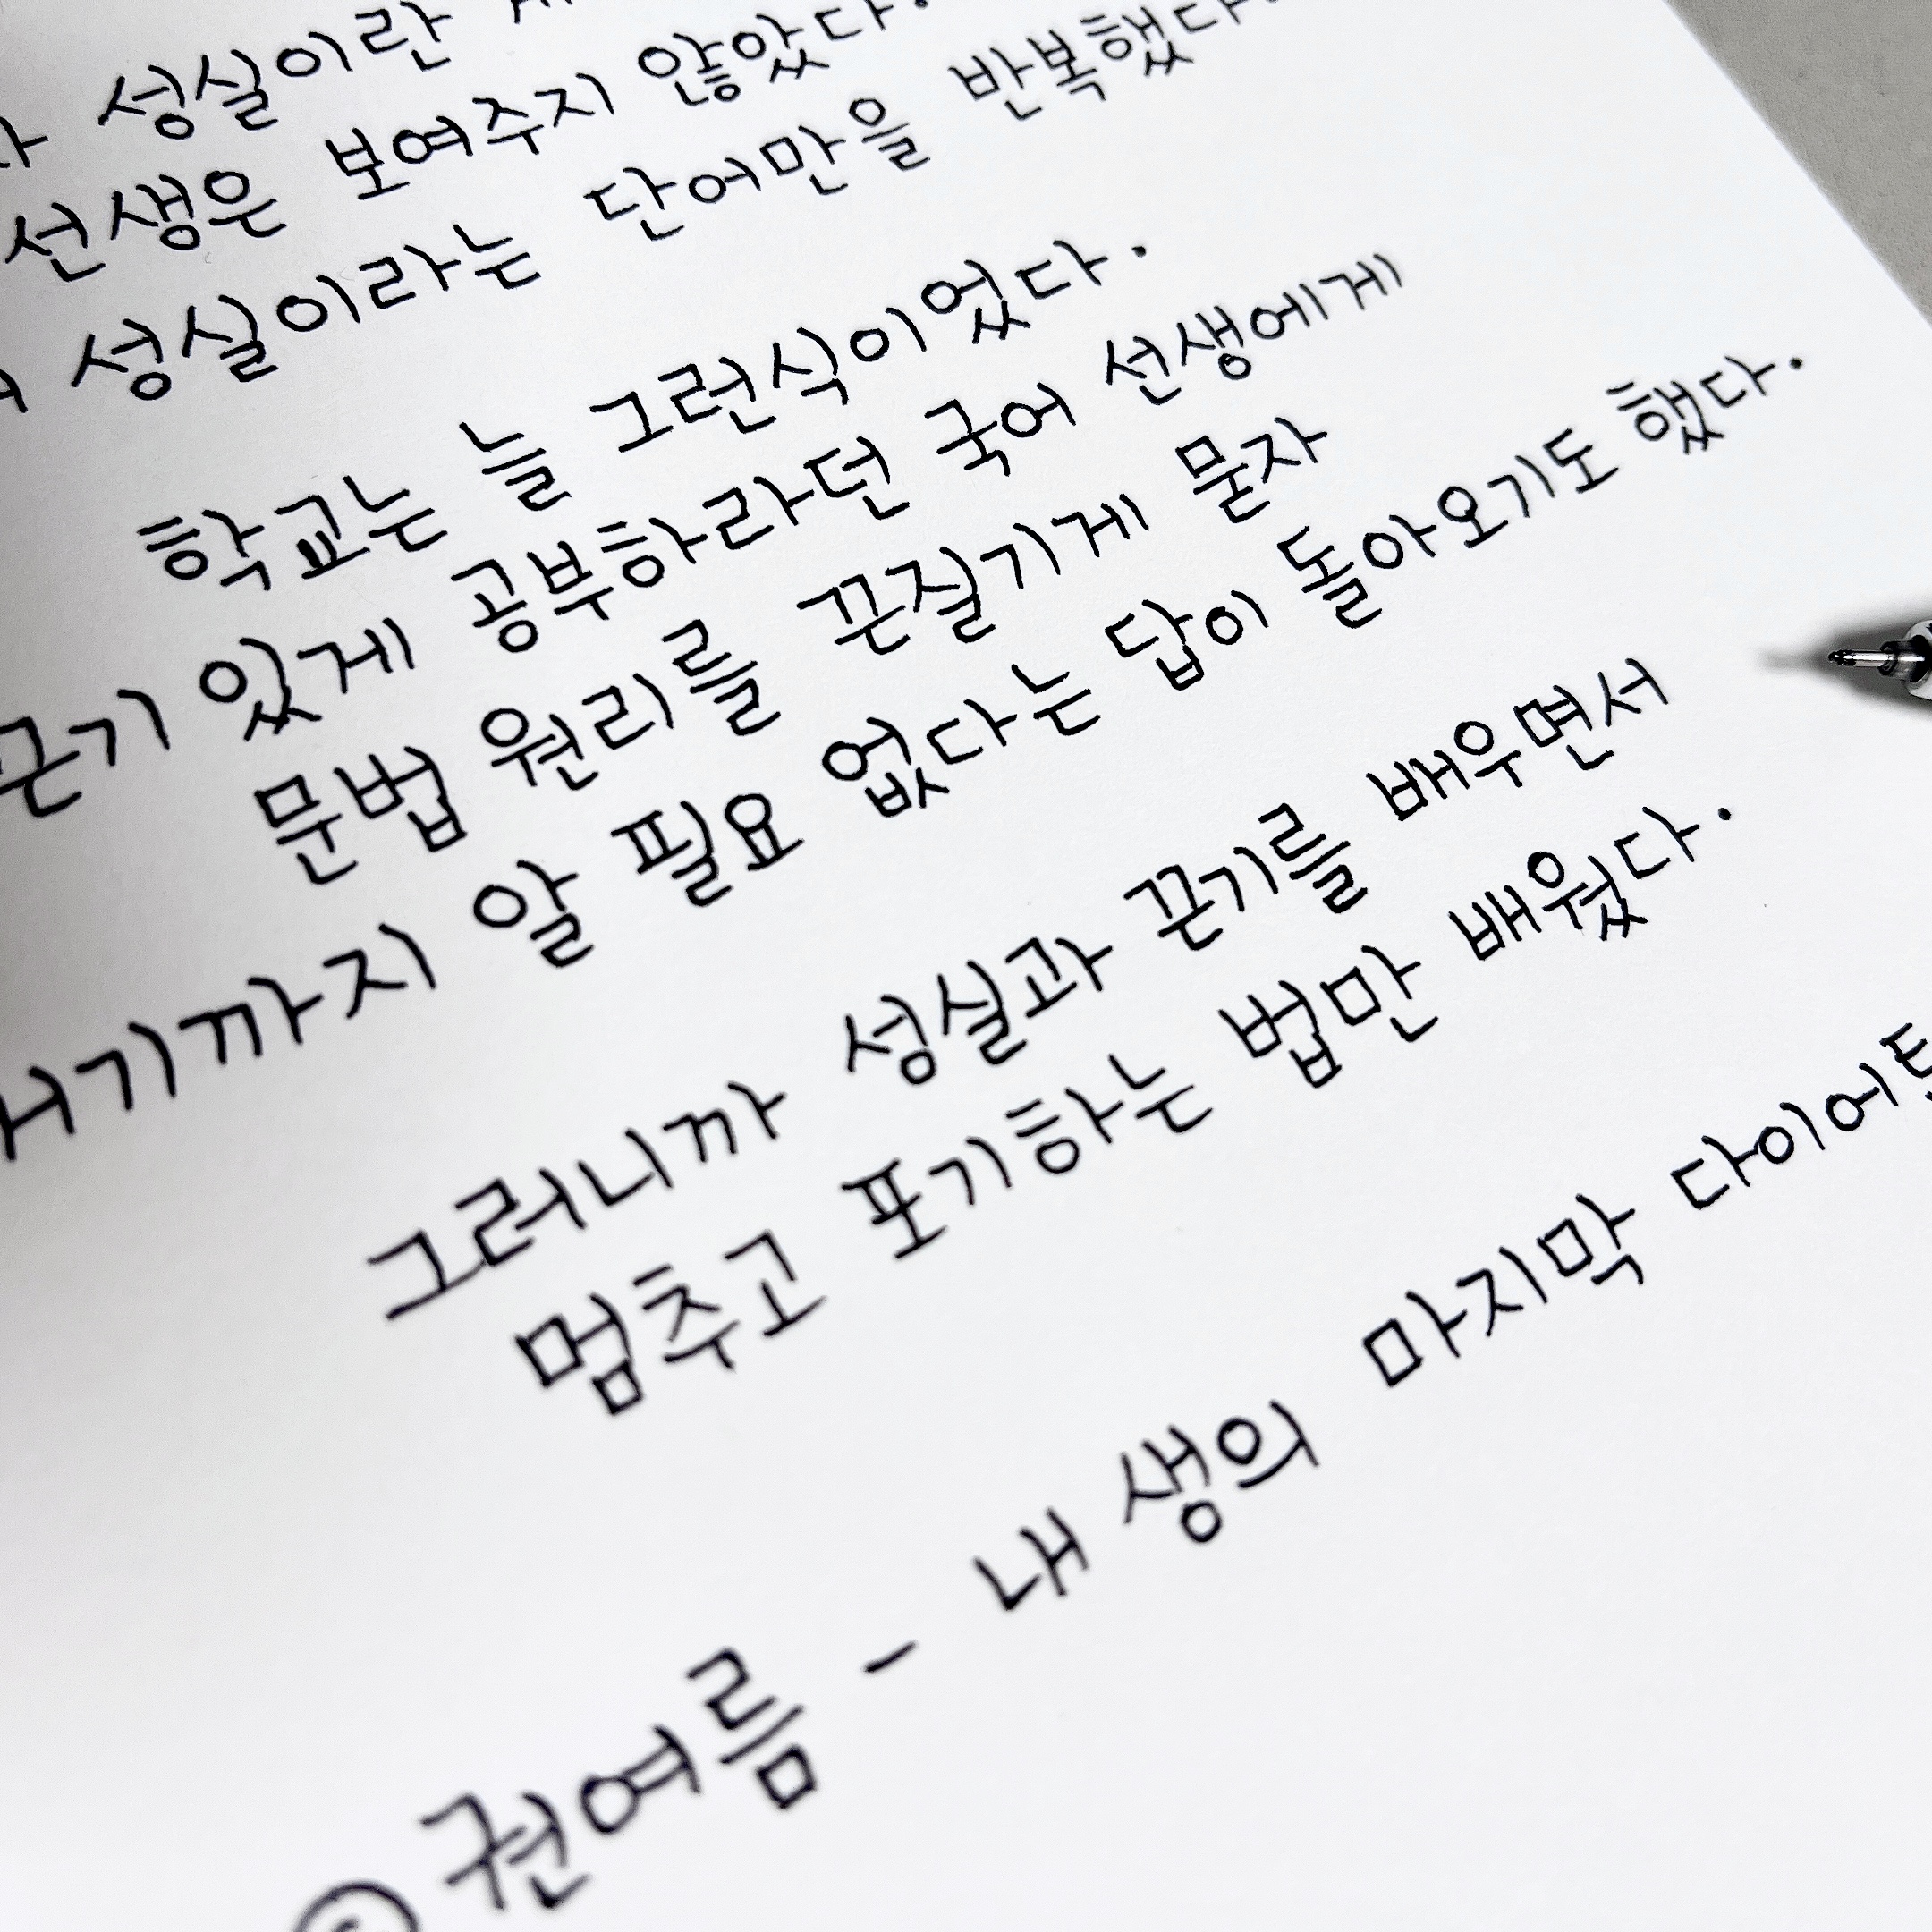 성실이란
선생은 보여주지 않았다.
성실이라는 단어만을 반복했다.
학교는 늘 그런식이었다.
끈기 있게 공부하라던 국어 선생에게
문법 원리를 끈질기게 묻자
거기까지 알 필요 없다는 답이 돌아오기도 했다.
그러니까 성실과 끈기를 배우면서
멈추고 포기하는 법만 배웠다.
권여름 - 내 생의 마지막 다이어트